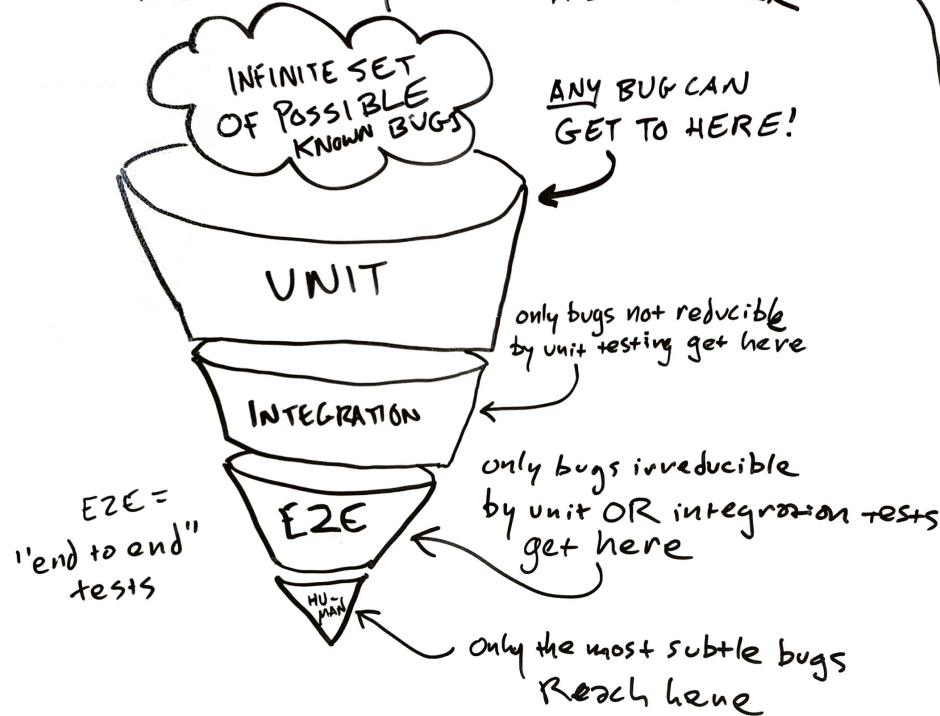 INFINITE SET
OF POSSIBLE
KNOWN BUGS
ANY BUG CAN
GET TO HERE!
UNIT
only bugs not reducible
by unit testing get here
INTEGRATION
only bugs irreducible
by unit OR integration tests
get here
E2E =
"end to end"
tests
E2E
HU-
MAN
Only the most subtle bugs
Reach here